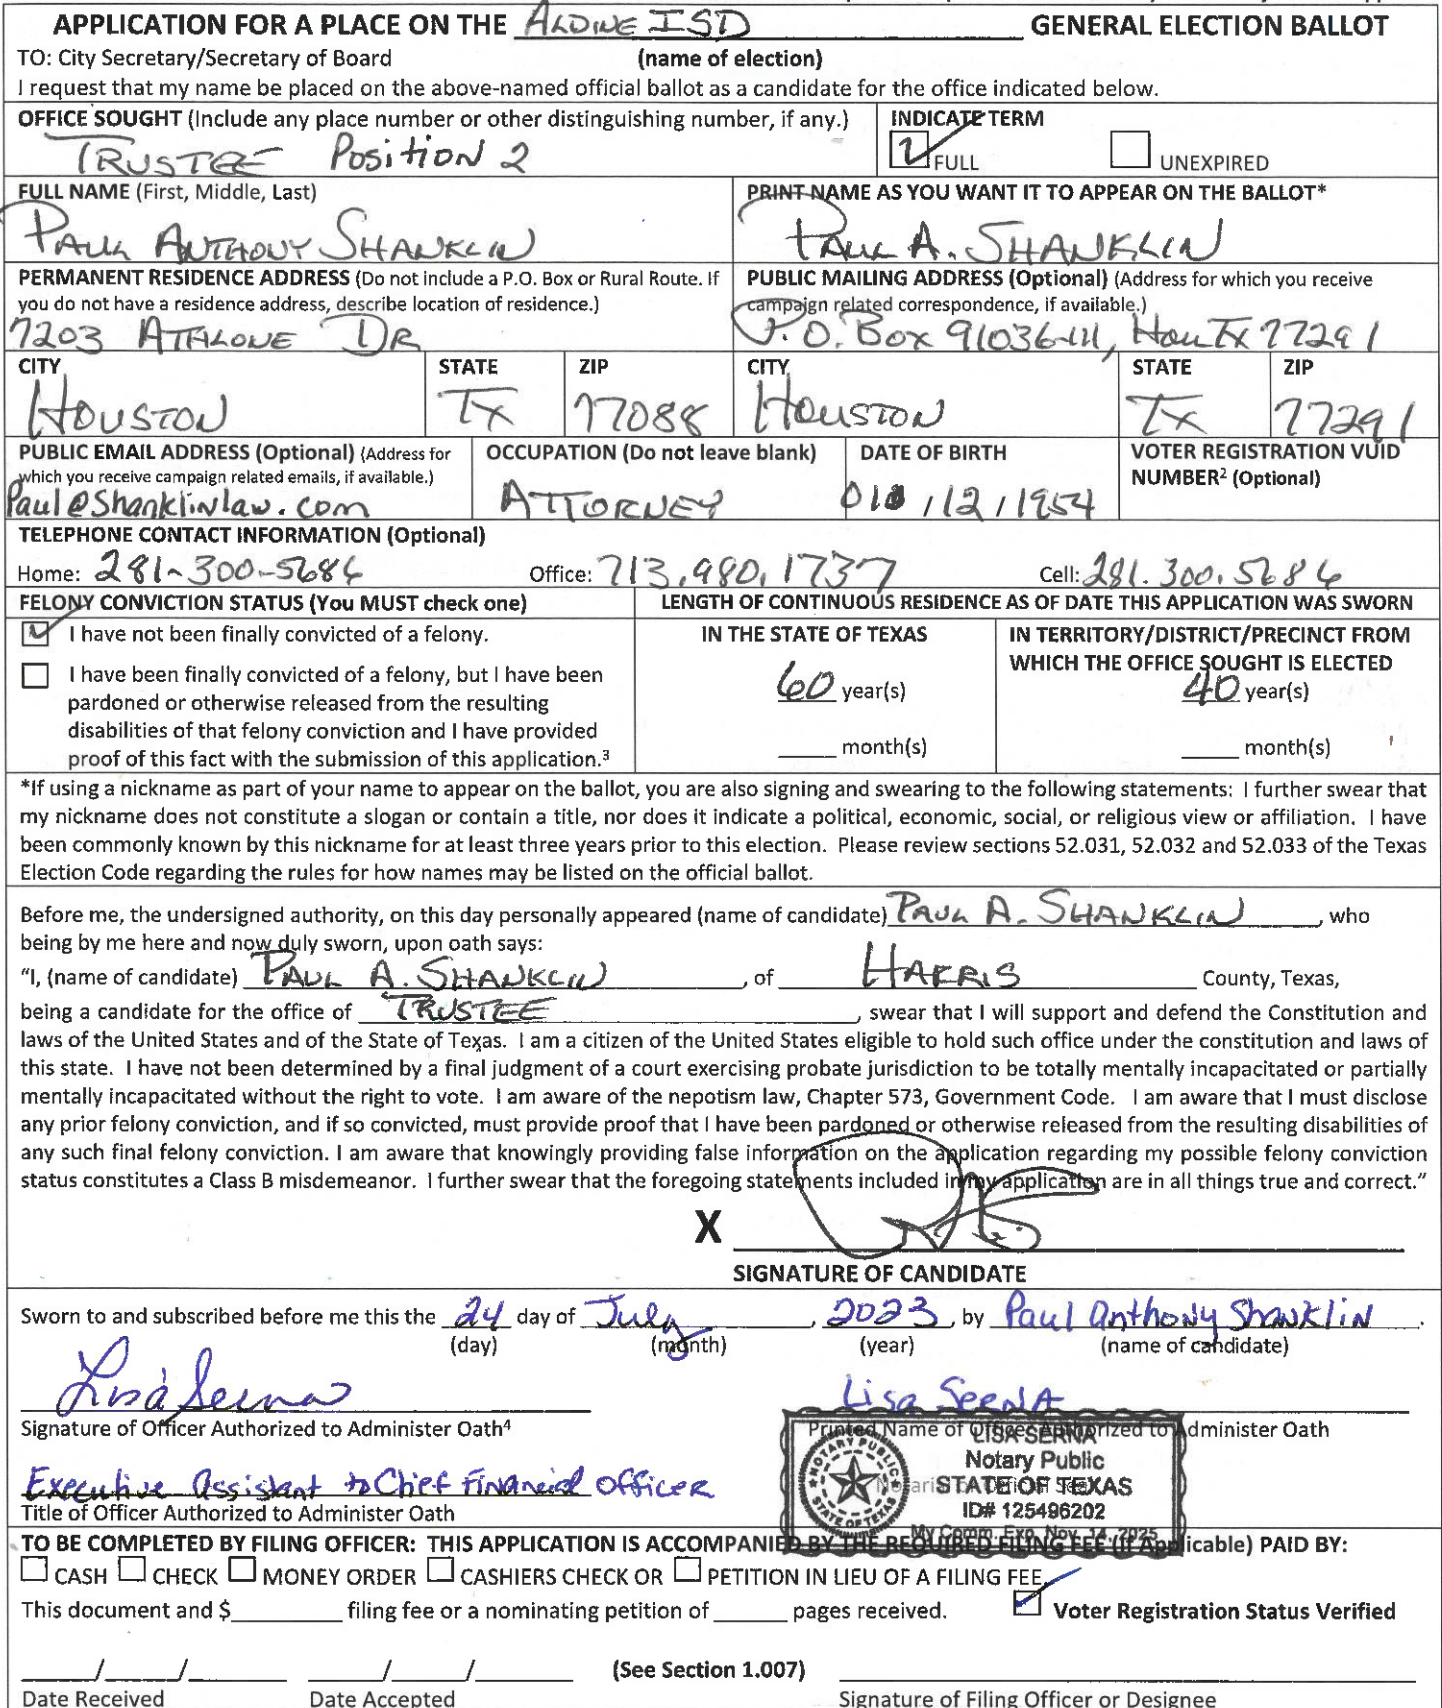 APPLICATION FOR A PLACE ON THE ALDINE ISD GENERAL ELECTION BALLOT
TO: City Secretary/Secretary of Board (name of election)
I request that my name be placed on the above-named official ballot as a candidate for the office indicated below.
OFFICE SOUGHT (Include any place number or other distinguishing number, if any.) INDICATE TERM
TRUSTEE Position 2 FULL UNEXPIRED
FULL NAME (First, Middle, Last) PRINT NAME AS YOU WANT IT TO APPEAR ON THE BALLOT*
PAUL ANTHONY SHANKLIN PAUL A. SHANKLIN
PERMANENT RESIDENCE ADDRESS (Do not include a P.O. Box or Rural Route. If PUBLIC MAILING ADDRESS (Optional) (Address for which you receive
you do not have a residence address, describe location of residence.) campaign related correspondence, if available.)
7203 ATHLONE DR P.O. Box 91036-111, Hou TX 77291
CITY STATE ZIP CITY STATE ZIP
HOUSTON TX 77088 HOUSTON TX 77291
PUBLIC EMAIL ADDRESS (Optional) (Address for OCCUPATION (Do not leave blank) DATE OF BIRTH VOTER REGISTRATION VUID
which you receive campaign related emails, if available.) NUMBER² (Optional)
Paul@Shanklinlaw.com ATTORNEY /12/1954
TELEPHONE CONTACT INFORMATION (Optional)
Home: 281-300-5686 Office: 713.980.1737 Cell: 281.300.5686
FELONY CONVICTION STATUS (You MUST check one) LENGTH OF CONTINUOUS RESIDENCE AS OF DATE THIS APPLICATION WAS SWORN
I have not been finally convicted of a felony. IN THE STATE OF TEXAS IN TERRITORY/DISTRICT/PRECINCT FROM
WHICH THE OFFICE SOUGHT IS ELECTED
I have been finally convicted of a felony, but I have been 60 year(s) 40 year(s)
pardoned or otherwise released from the resulting
disabilities of that felony conviction and I have provided
proof of this fact with the submission of this application.³ month(s) month(s)
*If using a nickname as part of your name to appear on the ballot, you are also signing and swearing to the following statements: I further swear that
my nickname does not constitute a slogan or contain a title, nor does it indicate a political, economic, social, or religious view or affiliation. I have
been commonly known by this nickname for at least three years prior to this election. Please review sections 52.031, 52.032 and 52.033 of the Texas
Election Code regarding the rules for how names may be listed on the official ballot.
Before me, the undersigned authority, on this day personally appeared (name of candidate) PAUL A. SHANKLIN, who
being by me here and now duly sworn, upon oath says:
"I, (name of candidate) PAUL A. SHANKLIN, of HARRIS County, Texas,
being a candidate for the office of TRUSTEE, swear that I will support and defend the Constitution and
laws of the United States and of the State of Texas. I am a citizen of the United States eligible to hold such office under the constitution and laws of
this state. I have not been determined by a final judgment of a court exercising probate jurisdiction to be totally mentally incapacitated or partially
mentally incapacitated without the right to vote. I am aware of the nepotism law, Chapter 573, Government Code. I am aware that I must disclose
any prior felony conviction, and if so convicted, must provide proof that I have been pardoned or otherwise released from the resulting disabilities of
any such final felony conviction. I am aware that knowingly providing false information on the application regarding my possible felony conviction
status constitutes a Class B misdemeanor. I further swear that the foregoing statements included in my application are in all things true and correct."
X
SIGNATURE OF CANDIDATE
Sworn to and subscribed before me this the 24 day of July, 2023, by Paul Anthony Shanklin.
(day) (month) (year) (name of candidate)
Lisa Serna Lisa SERNA
Signature of Officer Authorized to Administer Oath⁴ Printed Name of Officer Authorized to Administer Oath
LISA SERNA
Notary Public
STATE OF TEXAS
ID# 125496202
My Comm. Exp. Nov. 14, 2025
NOTARY PUBLIC STATE OF TEXAS
Executive Assistant to Chief Financial Officer
Title of Officer Authorized to Administer Oath
TO BE COMPLETED BY FILING OFFICER: THIS APPLICATION IS ACCOMPANIED BY THE REQUIRED FILING FEE (If Applicable) PAID BY:
CASH CHECK MONEY ORDER CASHIERS CHECK OR PETITION IN LIEU OF A FILING FEE.
This document and $ filing fee or a nominating petition of pages received. Voter Registration Status Verified
/ / / / (See Section 1.007)
Date Received Date Accepted Signature of Filing Officer or Designee